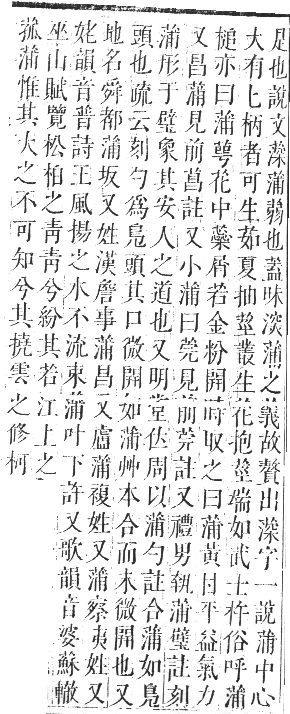 足也說文蒻蒲蒻也蓋味淡蒲之義故贅出蒻字一說蒲中心
大有匕柄者可生茹夏抽莖叢生花抱莖端如武士杵俗呼蒲
槌亦曰蒲萼花中蘂屑若金粉開時取之曰蒲黃甘平益氣力
又昌蒲見前菖註又小蒲曰莞見前莞註又禮男執蒲璧註刻
蒲形于璧象其安人之道也又明堂位周以蒲勺註合蒲如鳧
頭也疏云刻勺爲鳧頭其口微開如蒲艸本合而末微開也又
地名舜都蒲坂又姓漢詹事蒲昌又盧蒲複姓又蒲察夷姓又
姥韻音普詩王風揚之水不流束蒲叶下許又歌韻音婆蘇轍
巫山賦覽松柏之青青兮紛其若江上之
菰蒲惟其大之不可知兮其撓雲之修柯